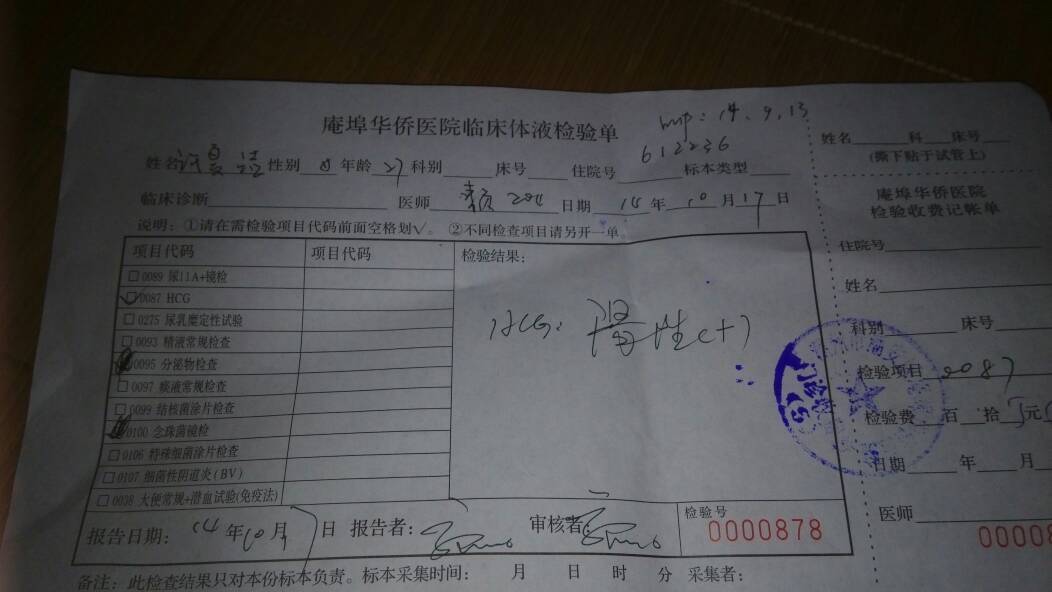 庵埠华侨医院临床体液检验单
lmp: 14.9.13
612236
姓名 性别 年龄 27 科别 床号 住院号 标本类型
临床诊断 医师 日期 14 年 10 月 17 日
说明:①请在需检验项目代码前面空格划√。 ②不同检查项目请另开一单
项目代码 项目代码 检验结果:
0089 尿11A+镜检
0087 HCG
0275 尿乳糜定性试验
0093 精液常规检查
0095 分泌物检查
0097 痰液常规检查
0099 结核菌涂片检查
0100 念珠菌镜检
0106 特殊细菌涂片检查
0107 细菌性阴道炎(BV)
0038 大便常规+潜血试验(免疫法)
HCG: 性(+)
报告日期: 14 年 10 月 日 报告者: 审核者: 检验号
0000878
备注:此检查结果只对本份标本负责。标本采集时间: 月 日 时 分 采集者:
姓名 科 床号
(撕下贴于试管上)
庵埠华侨医院
检验收费记帐单
住院号
姓名
科别 床号
检验项目 0087
检验费 百 拾 元
日期 年 月
医师
00008